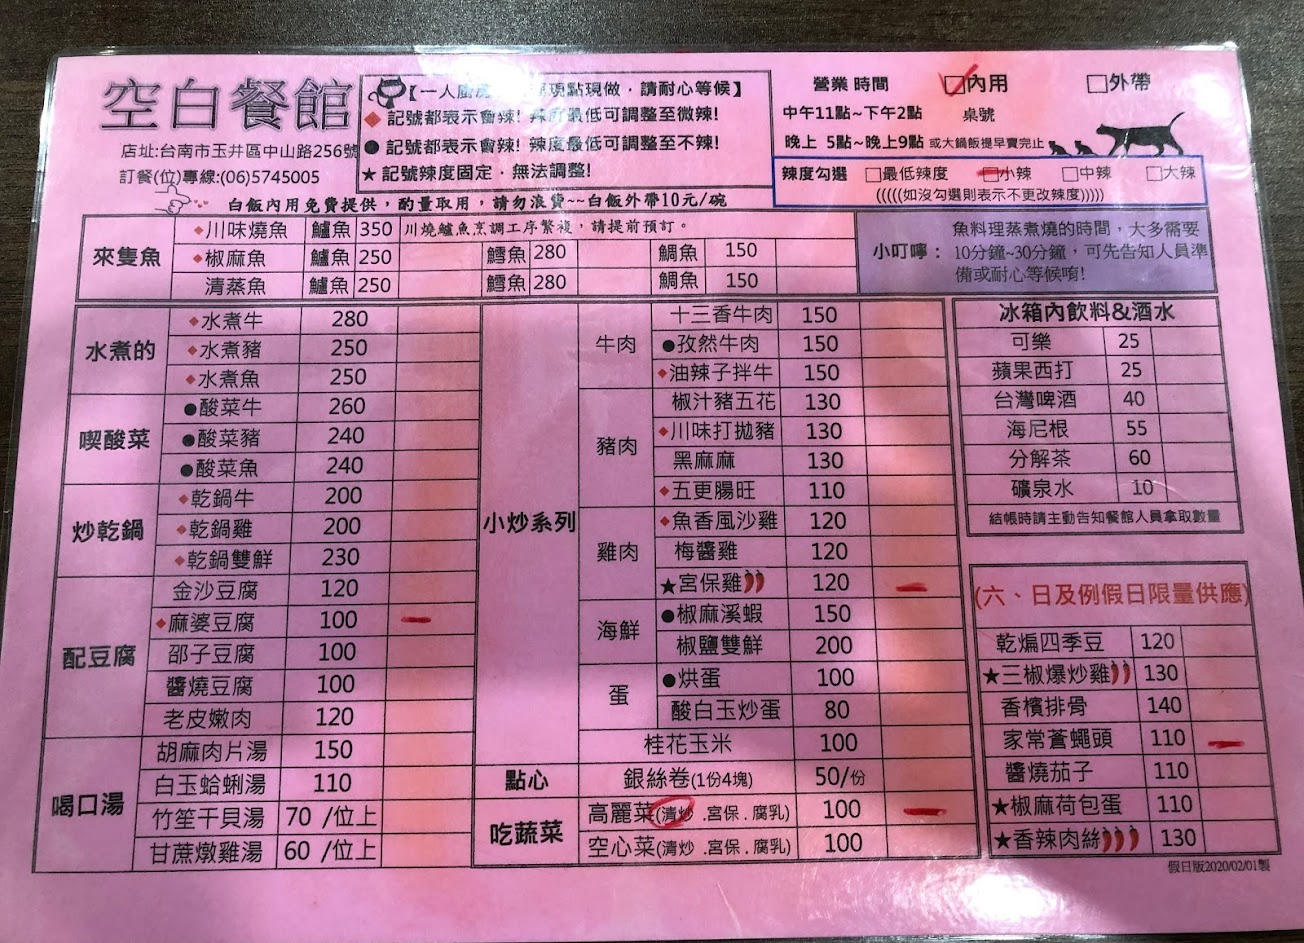 空白餐館
店址:台南市玉井區中山路256號
訂餐(位)專線:(06)5745005
【一人廚 現點現做，請耐心等候】
◆ 記號都表示會辣! 辣度最低可調整至微辣!
● 記號都表示會辣! 辣度最低可調整至不辣!
★ 記號辣度固定，無法調整!
營業時間
中午11點~下午2點
晚上 5點~晚上9點 或大鍋飯提早賣完止
☑內用 □外帶
桌號
辣度勾選 □最低辣度 □小辣 □中辣 □大辣
(((((如沒勾選則表示不更改辣度)))))
白飯內用免費提供，酌量取用，請勿浪費~~白飯外帶10元/碗
來隻魚
◆川味燒魚 鱸魚 350 川燒鱸魚烹調工序繁複，請提前預訂。
◆椒麻魚 鱸魚 250 鱈魚 280 鯛魚 150
清蒸魚 鱸魚 250 鱈魚 280 鯛魚 150
小叮嚀：
魚料理蒸煮燒的時間，大多需要
10分鐘~30分鐘，可先告知人員準
備或耐心等候唷!
水煮的
◆水煮牛 280
◆水煮豬 250
◆水煮魚 250
喫酸菜
●酸菜牛 260
●酸菜豬 240
●酸菜魚 240
炒乾鍋
◆乾鍋牛 200
◆乾鍋雞 200
◆乾鍋雙鮮 230
配豆腐
金沙豆腐 120
◆麻婆豆腐 100
邵子豆腐 100
醬燒豆腐 100
老皮嫩肉 120
喝口湯
胡麻肉片湯 150
白玉蛤蜊湯 110
竹笙干貝湯 70 /位上
甘蔗燉雞湯 60 /位上
小炒系列
牛肉
十三香牛肉 150
●孜然牛肉 150
◆油辣子拌牛 150
豬肉
椒汁豬五花 130
◆川味打拋豬 130
黑麻麻 130
◆五更腸旺 110
雞肉
◆魚香風沙雞 120
梅醬雞 120
★宮保雞 120
海鮮
●椒麻溪蝦 150
椒鹽雙鮮 200
蛋
●烘蛋 100
酸白玉炒蛋 80
桂花玉米 100
點心
銀絲卷(1份4塊) 50/份
吃蔬菜
高麗菜(清炒 .宮保 . 腐乳) 100
空心菜(清炒 .宮保 . 腐乳) 100
冰箱內飲料&酒水
可樂 25
蘋果西打 25
台灣啤酒 40
海尼根 55
分解茶 60
礦泉水 10
結帳時請主動告知餐館人員拿取數量
(六、日及例假日限量供應)
乾煸四季豆 120
★三椒爆炒雞 130
香檳排骨 140
家常蒼蠅頭 110
醬燒茄子 110
★椒麻荷包蛋 110
★香辣肉絲 130
假日版2020/02/01製